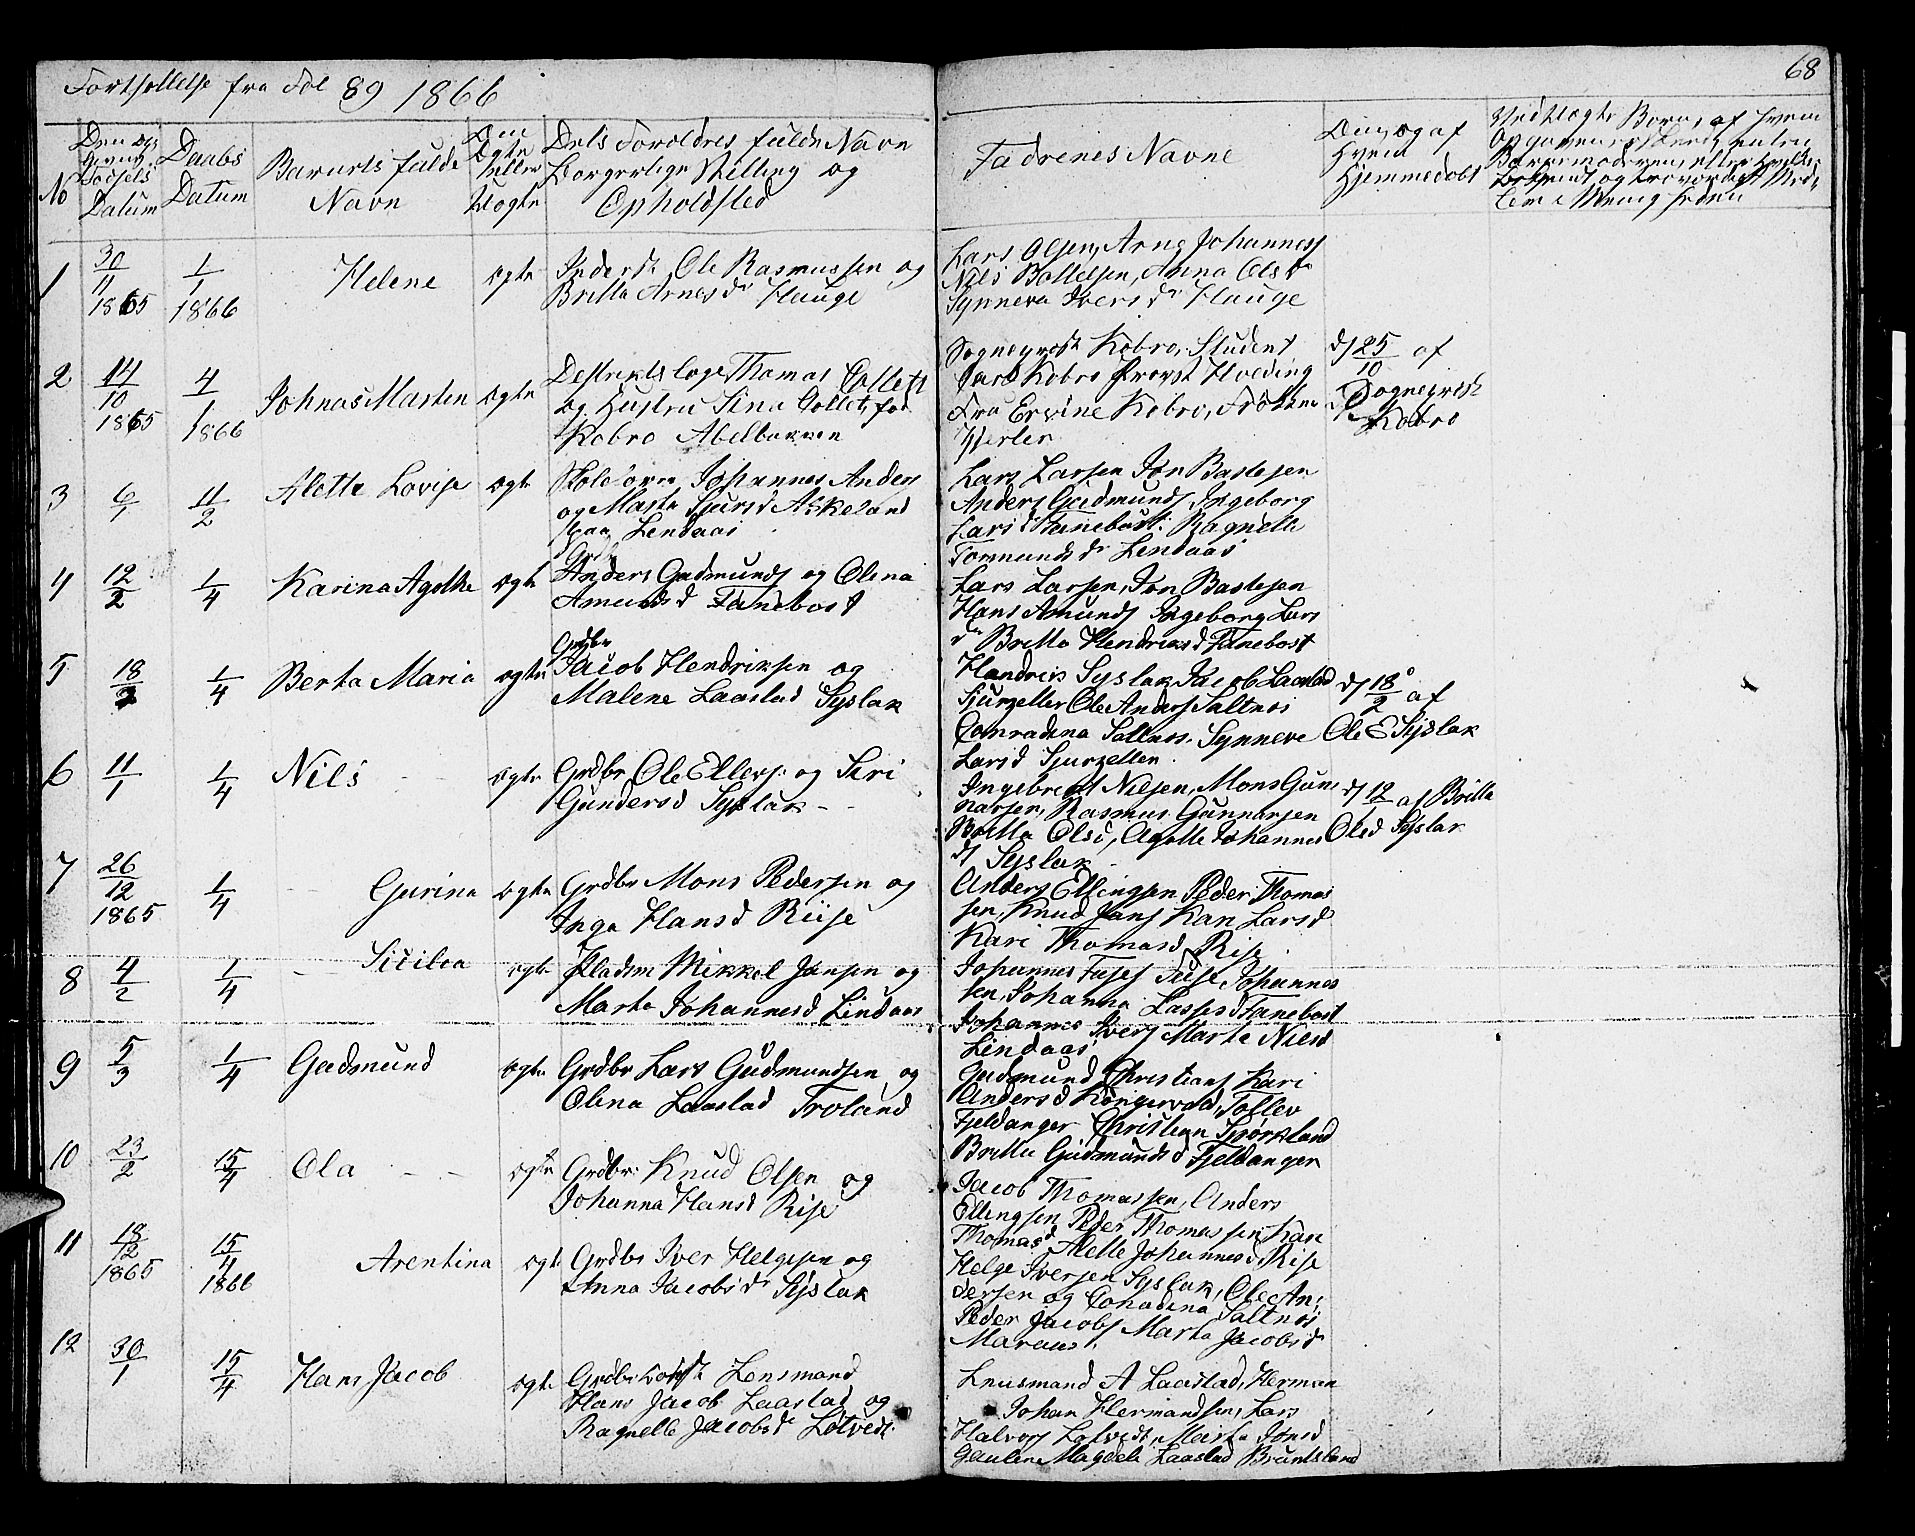 Fortsettelse fra Fol 89 1866
68
No
Datum
Daabs
Datum
Barnets fulde
Navn
Uægte
Dets Foreldres fulde Navn
Borgerlige Stilling og
Opholdsted
Fadrenes Navne
og af
Hvem
Hjemmedøbt
1
30
11
1865
1
1
1866
Helene
ægte
Ole Rasmussen og
Britta Arnesdr Hauge
Lars Olsen, Arne Johanness
Nils Bottelsen, Anna Olsdr
Synneva Iversdr Hauge
2
14
10
1865
4
1
1866
Johnas Marten
ægte
Destriktslæge Thomas Collett
og Hustru Sina Collet, fød
Kobro Abelbakken
Sogneprest Kobro, Student
Carl Kobro Provst Hveding
Fru Ervine Kobro, Frøken
dj 25
10
af
Sogneprest
Kobro
3
6
1
11
2
Alette Lovise
ægte
Johannes Anders
og Marta Sjursd Askeland
paa Lendaas
Lars Larsen Jon Bastesen
Anders Gudmunds, Ingeborg
Larsd Tanebust. Ragnelle
Tormundsdr Lendaas
4
12
2
1
4
Karina Agethe
ægte
Anders Gudmunds og Olena
Amundsd Tanebost
Lars Larsen, Jon Bastesen
Hans Amunds Ingeborg Lars
dr Britta Hendriksd Tanebost
5
18
2
1
4
Berta Maria
ægte
Grdbr
Jacob Hendriksen og
Malene Laastad Syslak
Hendrik Syslak Jacob Laastad
Sjurzeller Ole Anders Saltnes
Conradina Saltnes, Synneve
Larsd Sjurzellen
dj 18
2
af
Ole E Syslak
6
11
1
1
4
Nils
ægte
Grdbr Ole Ellevs. og Siri
Gundersd Syslak
Ingebregt Nilsen, Mons Gun
narsen, Rasmus Gunnarsen
Britta Olsd, Agette Johannes
d Syslak
dj 12
1
af Britta
Olsd Syslak
7
26
12
1865
1
4
Gurina
ægte
Grdbr Mons Pedersen og
Inga Hansd Riise
Anders Ellingsen Peder Thomas
sen, Knud Jans Kari Larsd
Kari Thomasd Rise
8
4
2
1
4
Sicilea
ægte
Pladsm Mikkel Jansen og
Marta Johannesd Lindaas
Johannes
sen, Johanna Lassesd Tanebost
Johannes Ivers Marta Nilsd
Lindaas
9
5
3
1
4
Gudmund
ægte
Grdbr Lars Gudmundsen og
Olena Laastad Troland
Gudmund Christians Kari
Andersd Kongevold, Tollev
Fjeldanger Christian Spørkland
Britta Gudmundsd Fjeldanger
10
23
2
15
4
Ola
ægte
Grdbr. Knud Olsen og
Johanna Hansd Rise
Jacob Thomassen, Anders
Ellingsen Peder Thomassen Kari
Thomasd Alette Johannesd Rise
11
18
12
1865
15
4
1866
Arentina
ægt
Grdbr Iver Helgesen og
Anna Jacobsdr Syslak
Helge Iversen Syslak, Ole An
dersen og Conadina Saltnes
Peder Jacobs Marta Jacobsdr
12
30
1
15
4
Hans Jacob
ægte
Grdbr Lensmand
Hans Jacob Laastad og
Ragnelle Jacobsdr Løtvedt
Lensmand A Laastad, Herman
Johan Hermandsen, Lars
Halvors Løtvedt, Marta Jonsd
Magdela Laastad Bruntsland